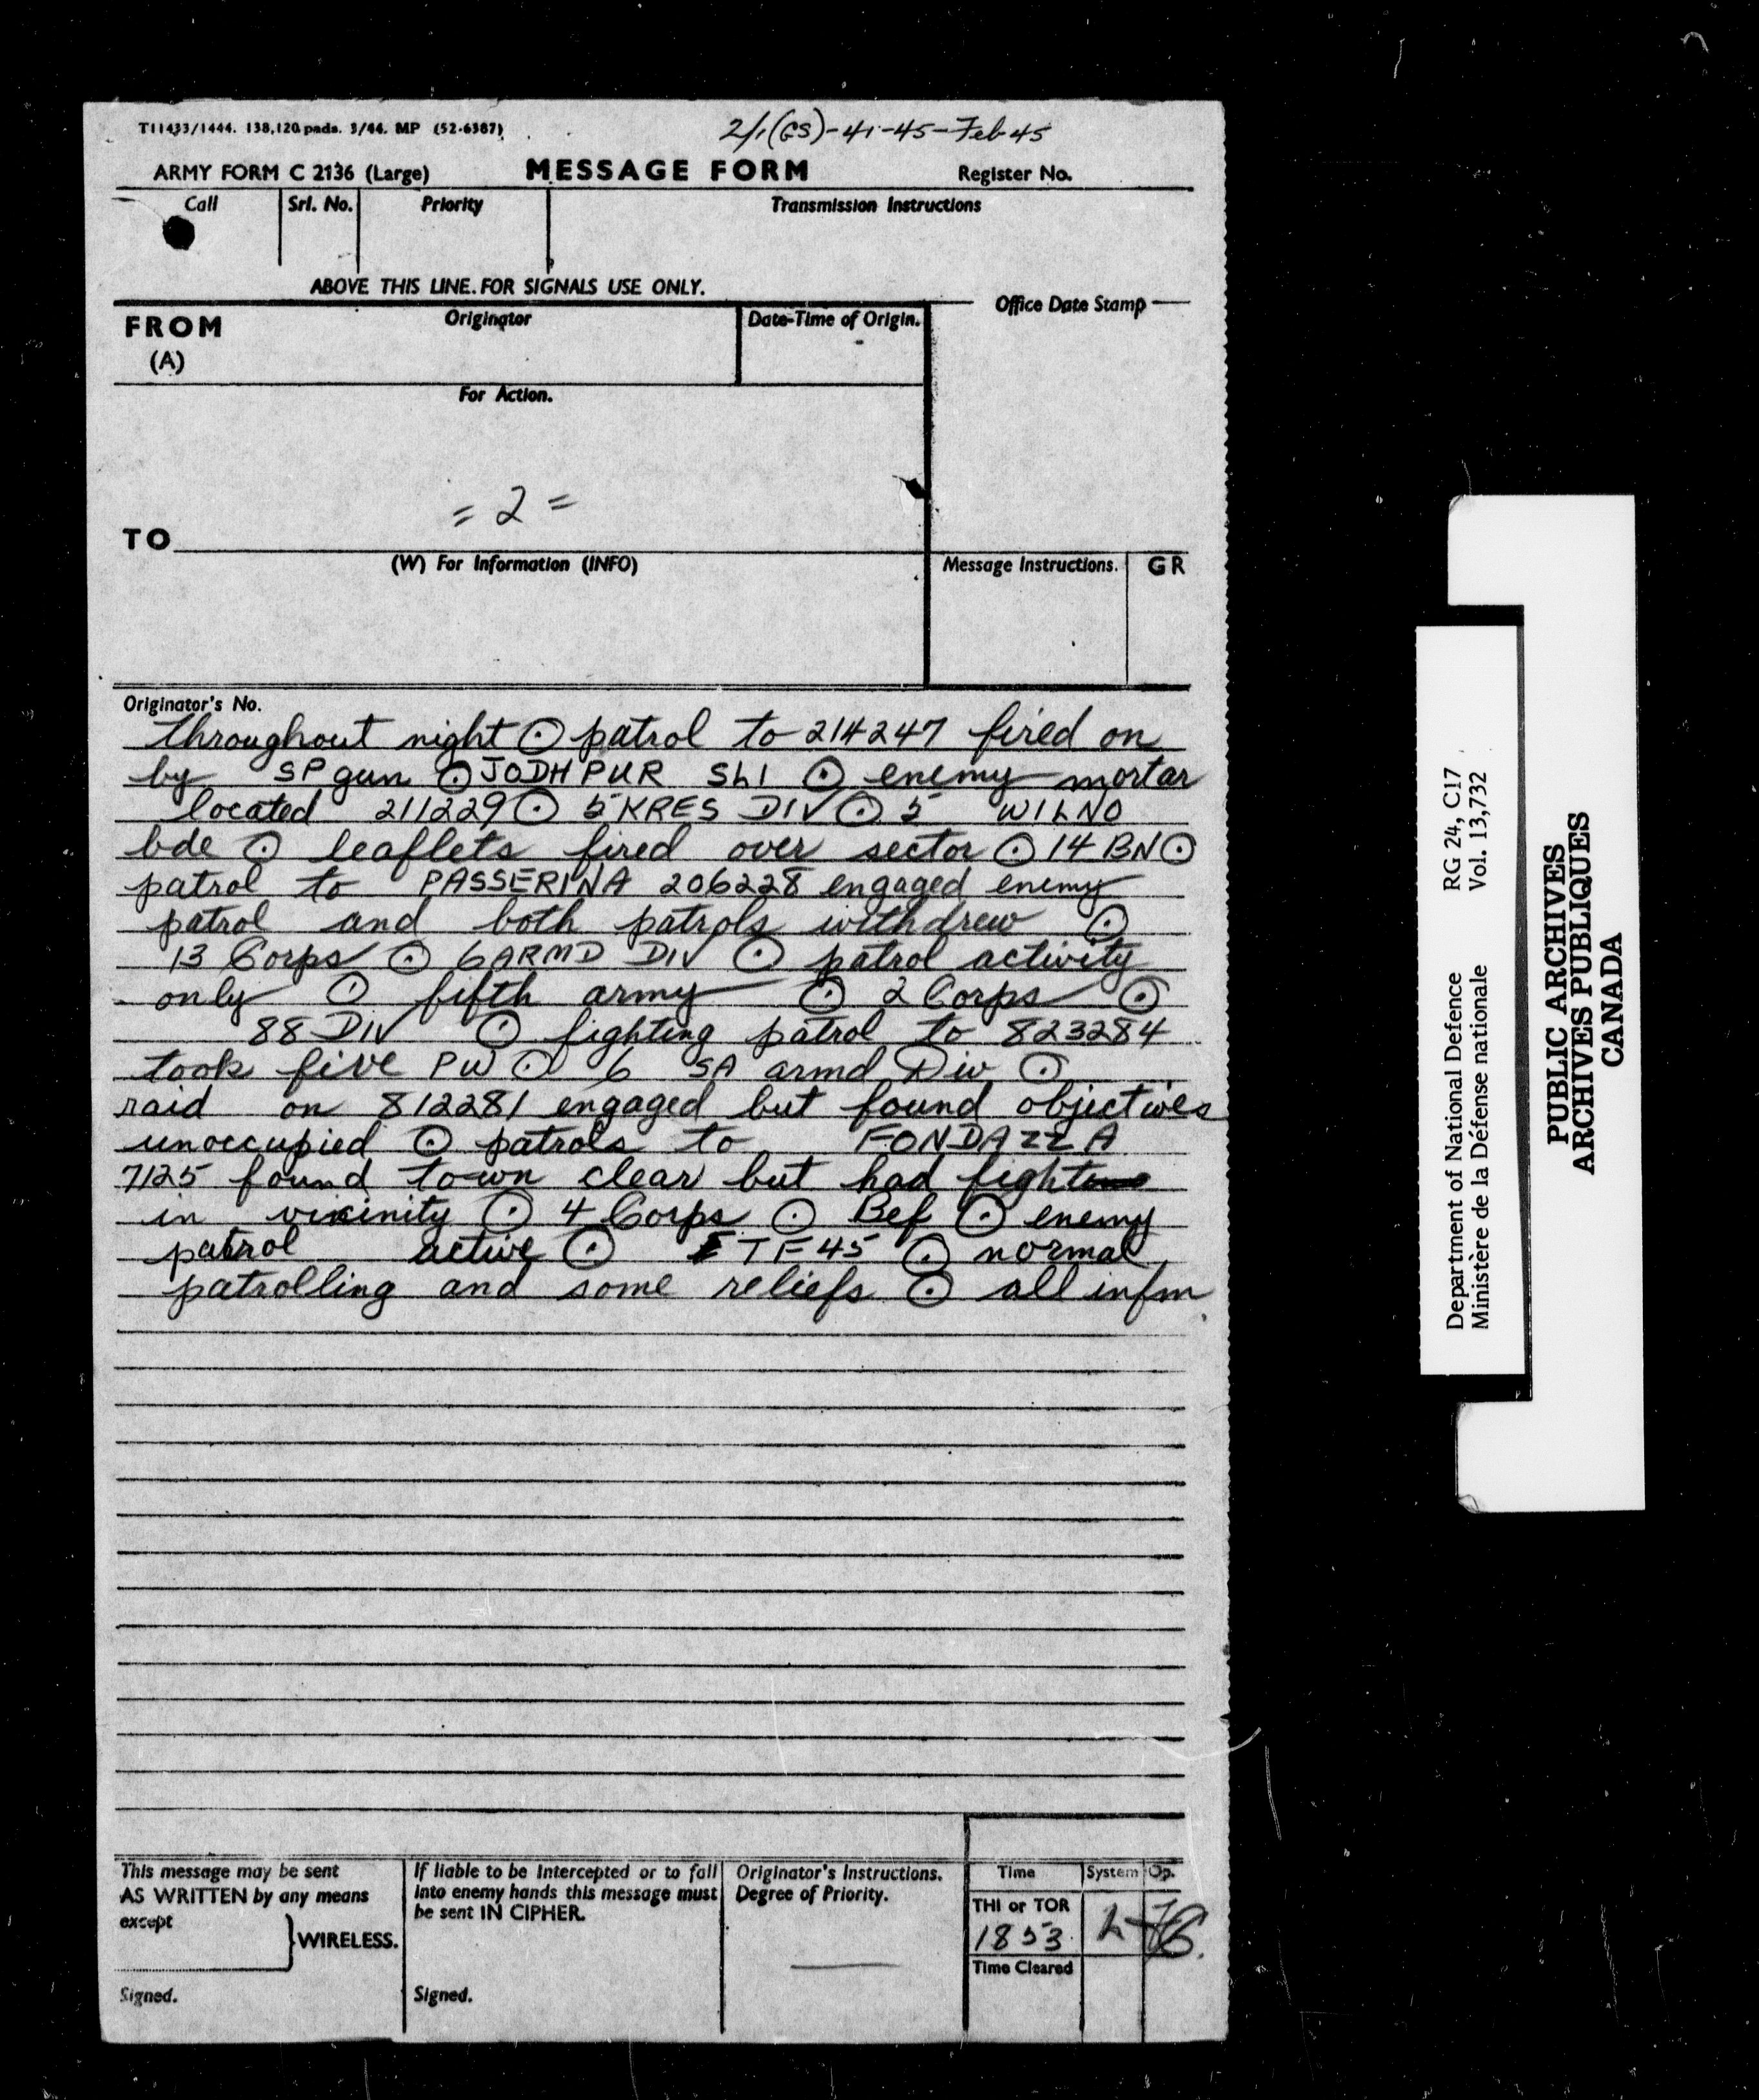 T11433/1444. 138,120 pads. 3/44. MP (52-6387)
2/1(GS)-41-45-Feb 45
ARMY FORM C 2136 (Large)
MESSAGE FORM
Register No.
Call
Srl. No.
Priority
Transmission Instructions
ABOVE THIS LINE. FOR SIGNALS USE ONLY.
Office Date Stamp
FROM
(A)
Originator
Date-Time of Origin.
For Action.
= 2 =
TO
(W) For Information (INFO)
Message Instructions.
GR
Originator's No.
throughout night ⊙ patrol to 214247 fired on
by SP gun ⊙ JODHPUR SLI ⊙ enemy mortar
located 211229 ⊙ 5 KRES DIV ⊙ 5 WILNO
bde ⊙ leaflets fired over sector ⊙ 14 BN ⊙
patrol to PASSERINA 206228 engaged enemy
patrol and both patrols withdrew ⊙
13 Corps ⊙ 6 ARMD DIV ⊙ patrol activity
only ⊙ fifth army ⊙ 2 Corps ⊙
88 DIV ⊙ fighting patrol to 823284
took five PW ⊙ 6 SA armd Div ⊙
raid on 812281 engaged but found objectives
unoccupied ⊙ patrols to FONDAZZA
7125 found town clear but had fight
in vicinity ⊙ 4 Corps ⊙ Bef ⊙ enemy
patrol active ⊙ TF 45 ⊙ normal
patrolling and some reliefs ⊙ all infm
This message may be sent
AS WRITTEN by any means
except
WIRELESS.
Signed.
If liable to be intercepted or to fall
into enemy hands this message must
be sent IN CIPHER.
Signed.
Originator's Instructions.
Degree of Priority.
Time
System
Op.
THI or TOR
1853
Time Cleared
Department of National Defence
Ministère de la Défense nationale
RG 24, C17
Vol. 13,732
PUBLIC ARCHIVES
ARCHIVES PUBLIQUES
CANADA